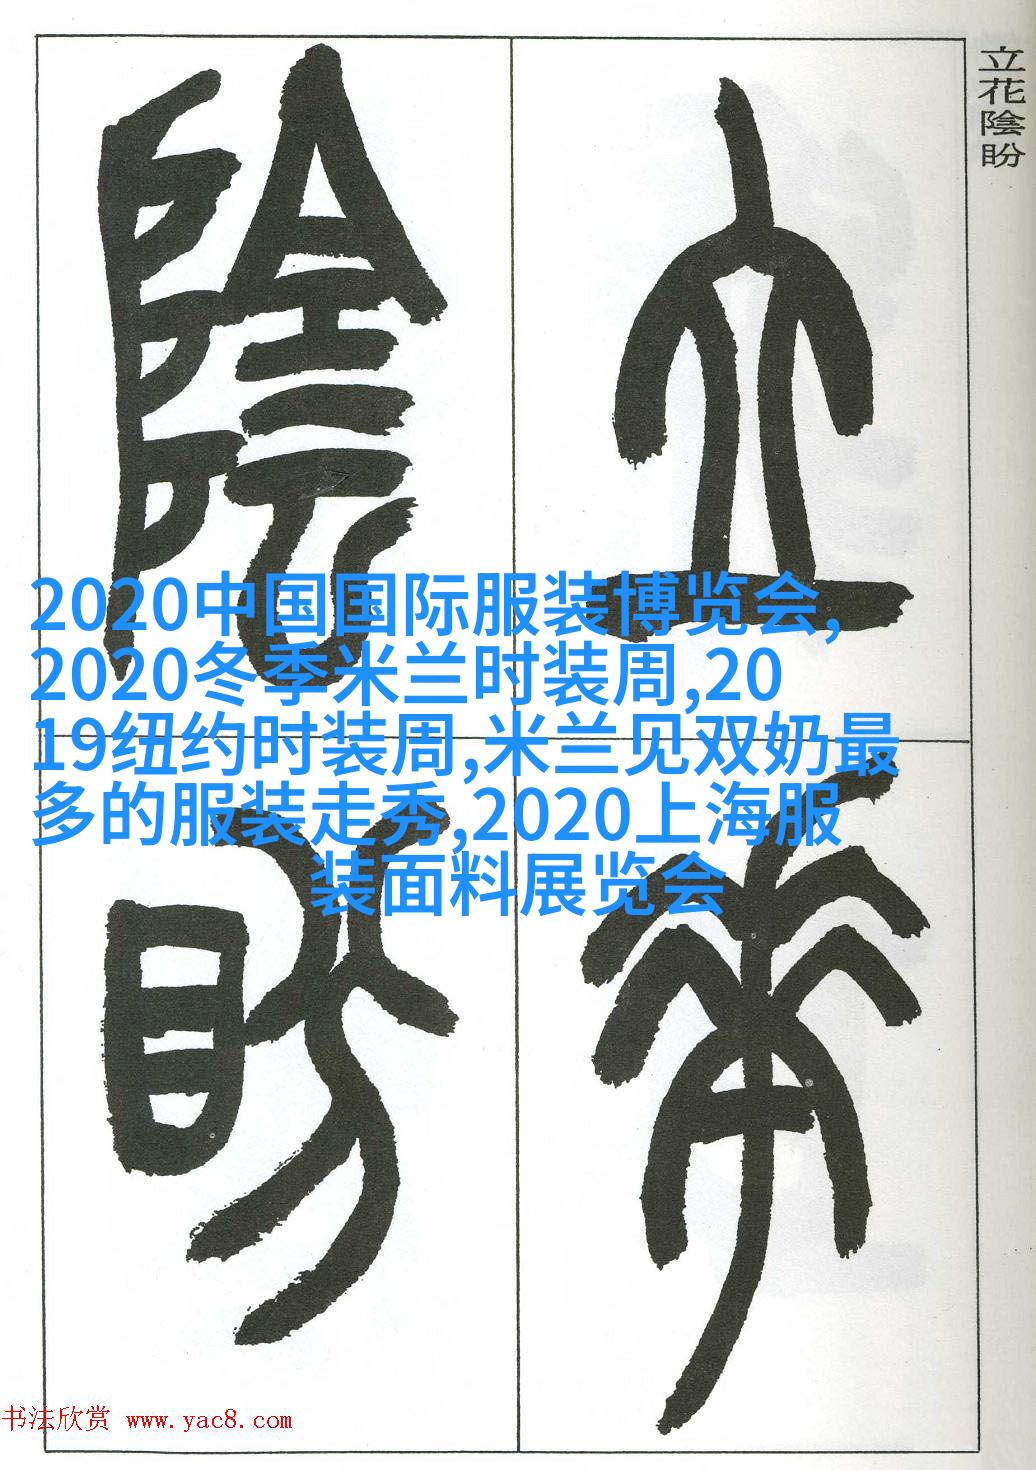 立花陰盼
立
花
陰
盼
2020中国国际服装博览会,
2020冬季米兰时装周,20
19纽约时装周,米兰见双奶最
多的服装走秀,2020上海服
装面料展览会
书法欣赏 www.yac8.com